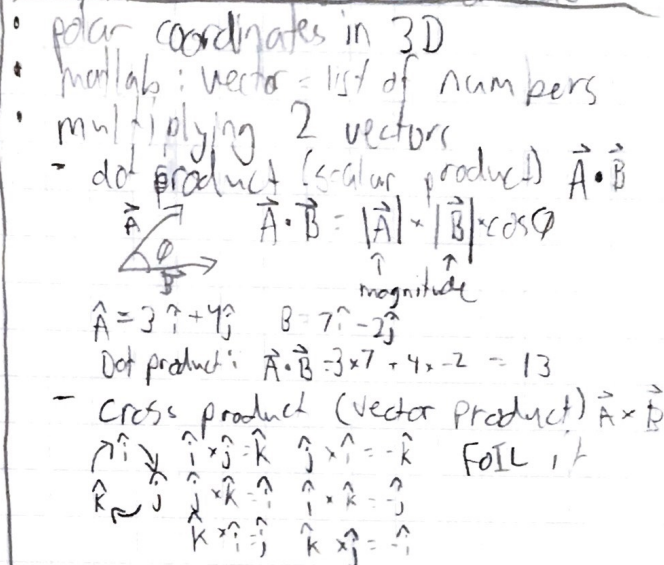 • polar coordinates in 3D
• matlab: vector = list of numbers
• multiplying 2 vectors
- dot product (scalar product) A⃗·B⃗
A⃗ φ B⃗ A⃗·B⃗ = |A⃗| × |B⃗| × cosφ
↑ ↑
magnitude
Â = 3î + 4ĵ B = 7î - 2ĵ
Dot product: A⃗·B⃗ = 3×7 + 4×-2 = 13
- cross product (vector product) A⃗ × B⃗
î î × ĵ = k̂ ĵ × î = -k̂ FOIL it
k̂ ĵ ĵ × k̂ = î î × k̂ = -ĵ
k̂ × î = ĵ k̂ × ĵ = -î